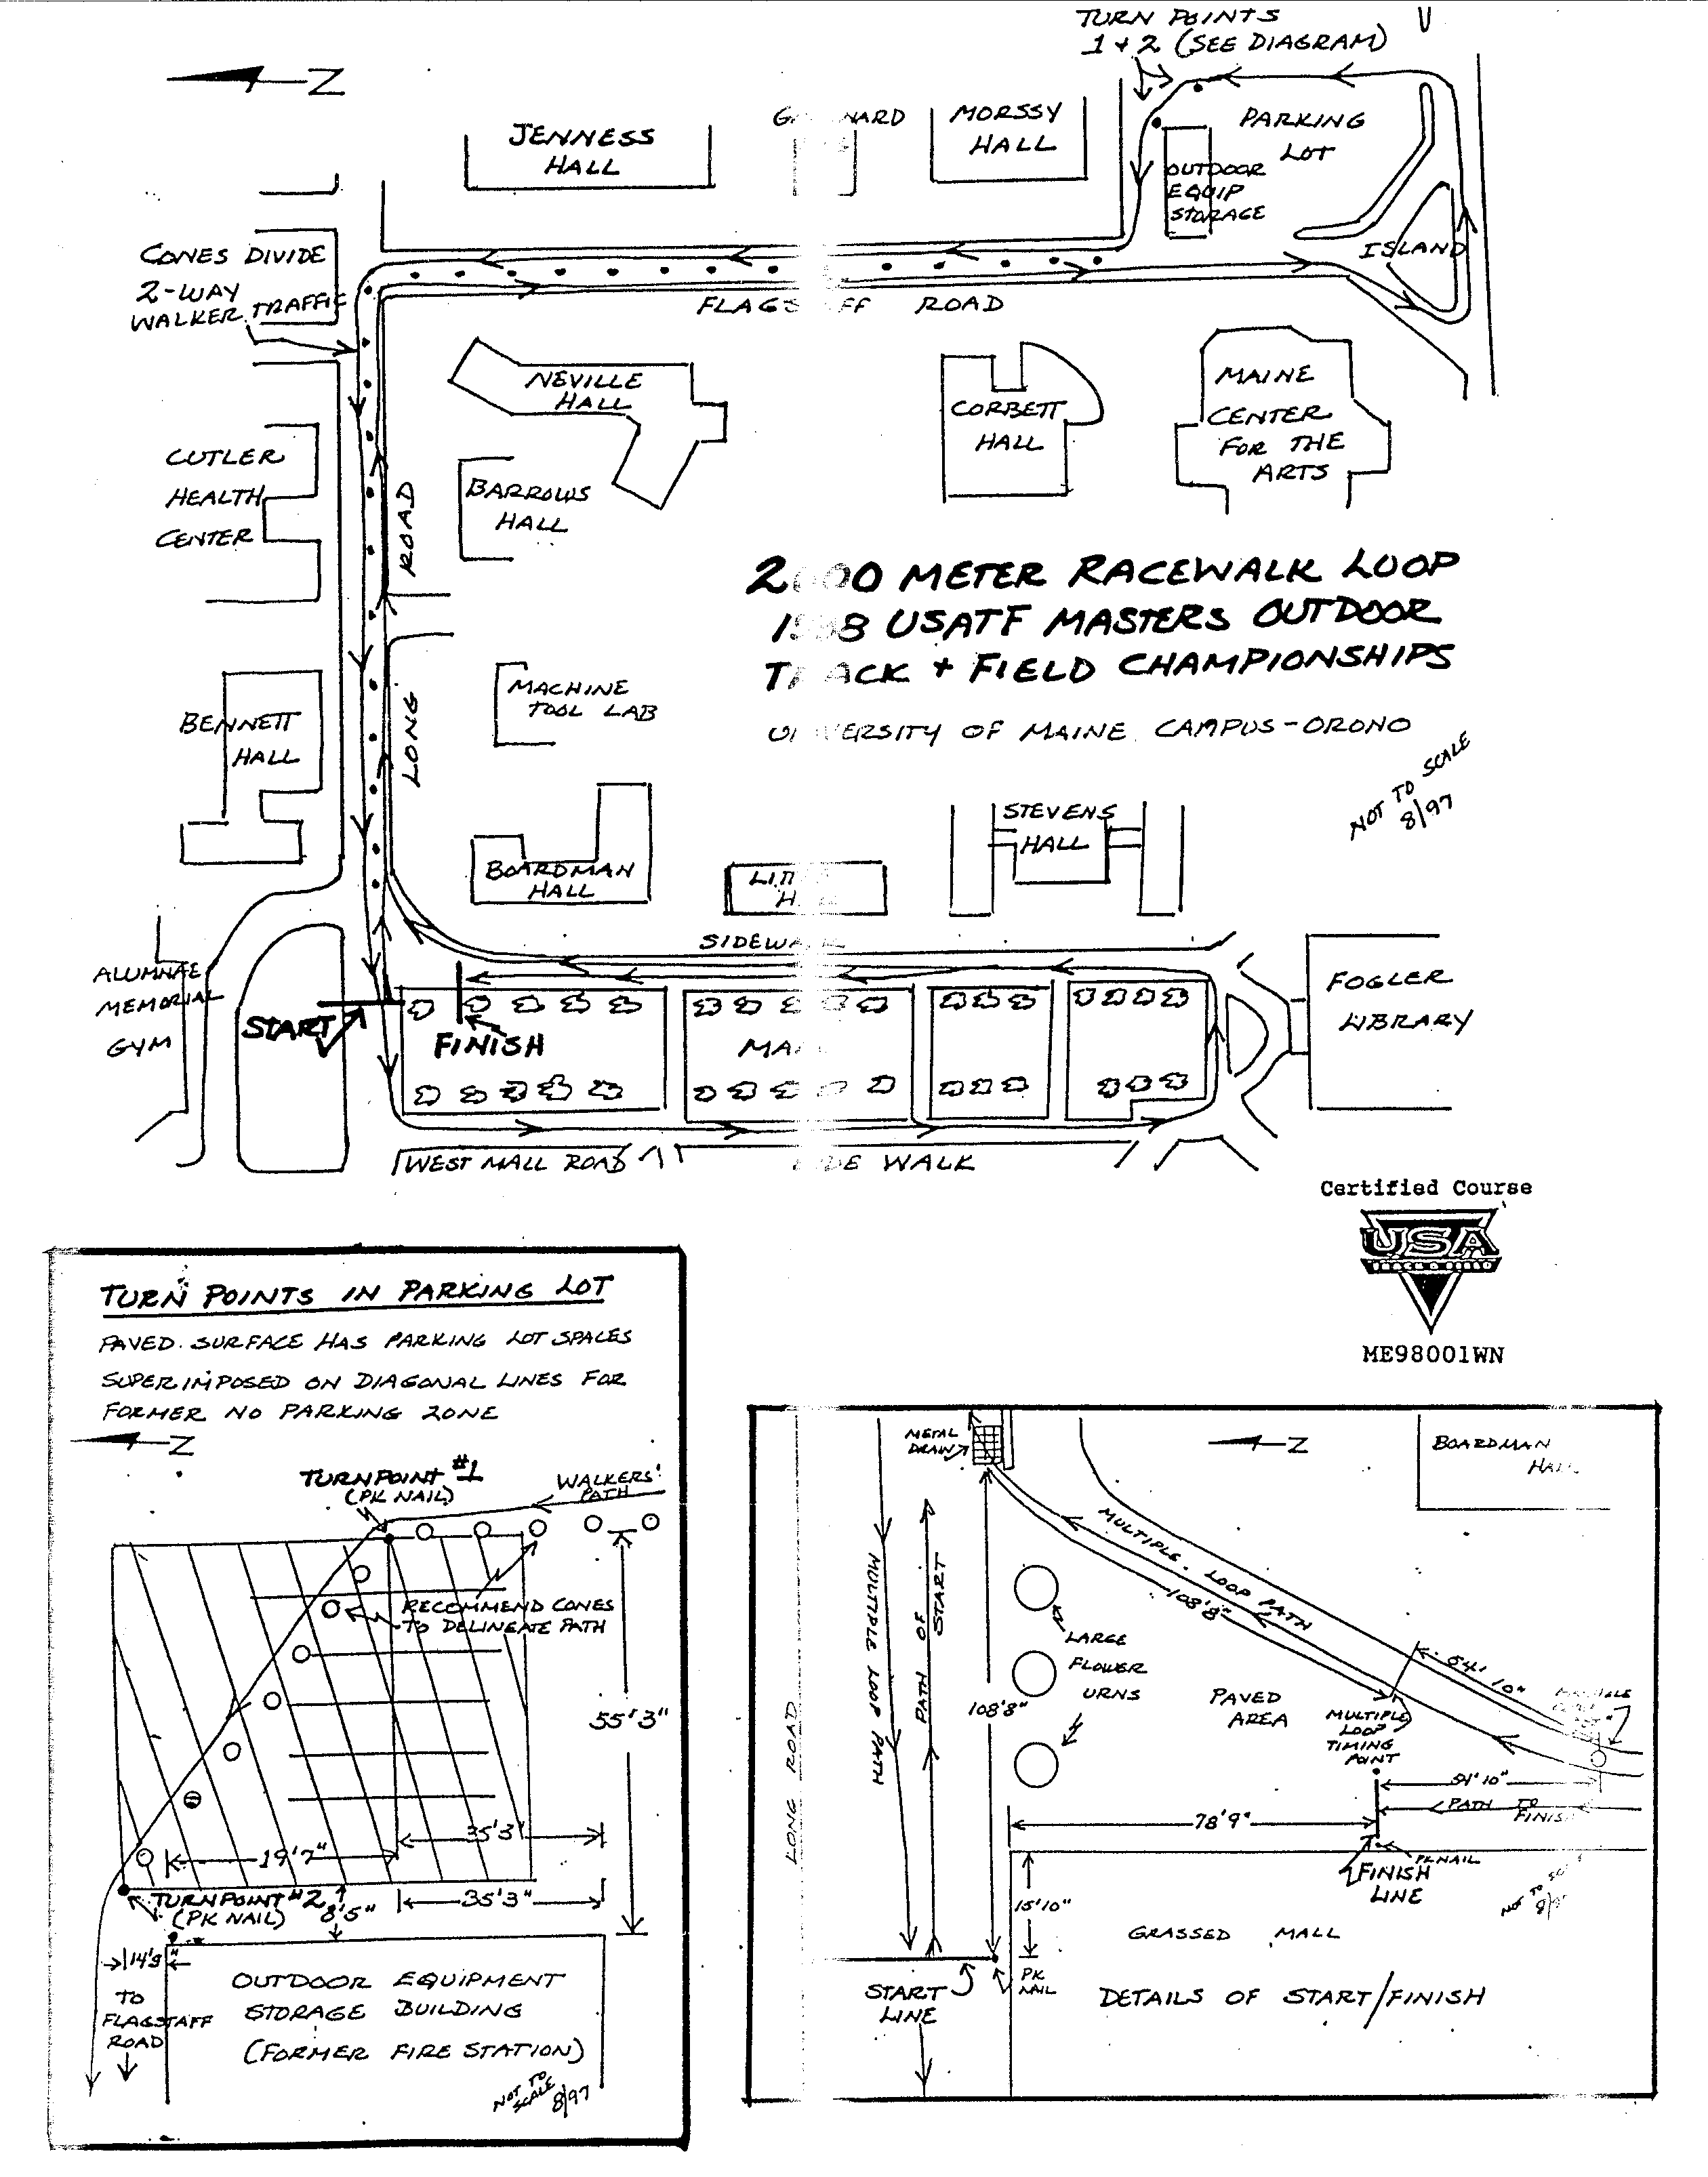 TURN POINTS
1 + 2 (SEE DIAGRAM)
Z
JENNESS
HALL
MORSSY
HALL
PARKING
LOT
OUTDOOR
EQUIP
STORAGE
ISLAND
CONES DIVIDE
2-WAY
WALKER TRAFFIC
ROAD
NEVILLE
HALL
CORBETT
HALL
MAINE
CENTER
FOR THE
ARTS
CUTLER
HEALTH
CENTER
BARROWS
HALL
LONG ROAD
METER RACEWALK LOOP
USATF MASTERS OUTDOOR
+ FIELD CHAMPIONSHIPS
OF MAINE CAMPUS-ORONO
NOT TO SCALE
8/97
BENNETT
HALL
MACHINE
TOOL LAB
BOARDMAN
HALL
STEVENS
HALL
ALUMNAE
MEMORIAL
GYM
START
FINISH
FOGLER
LIBRARY
WEST MALL ROAD
WALK
Certified Course
USA
TRACK & FIELD
ME98001WN
TURN POINTS IN PARKING LOT
PAVED SURFACE HAS PARKING LOT SPACES
SUPERIMPOSED ON DIAGONAL LINES FOR
FORMER NO PARKING ZONE
Z
TURN POINT #1
(PK NAIL)
WALKERS'
PATH
RECOMMEND CONES
TO DELINEATE PATH
55'3"
35'3"
19'7"
35'3"
TURN POINT #2
(PK NAIL)
8'5"
14'9"
TO
FLAGSTAFF
ROAD
OUTDOOR EQUIPMENT
STORAGE BUILDING
(FORMER FIRE STATION)
NOT TO
SCALE
8/97
METAL
DRAIN
Z
BOARDMAN
MULTIPLE LOOP PATH
108'8"
MULTIPLE LOOP PATH
PATH OF START
LARGE
FLOWER
URNS
108'8"
54'10"
PAVED
AREA
MULTIPLE
LOOP
TIMING
POINT
LONG ROAD
54'10"
PATH TO
FINISH
78'9"
PK NAIL
FINISH
LINE
15'10"
PK
NAIL
GRASSED MALL
START
LINE
DETAILS OF START/FINISH